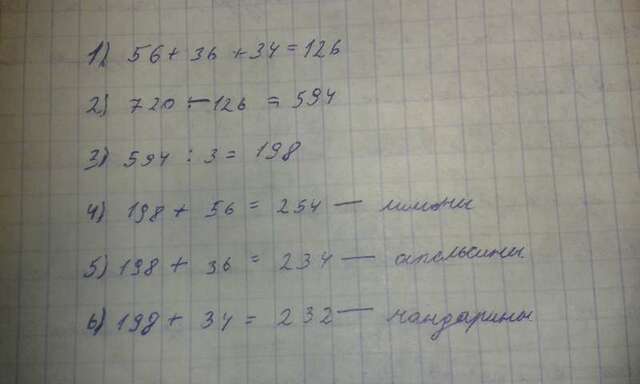 1) 56 + 36 + 34 = 126
2) 720 - 126 = 594
3) 594 : 3 = 198
4) 198 + 56 = 254 — лимоны
5) 198 + 36 = 234 — апельсины
6) 198 + 34 = 232 — мандарины